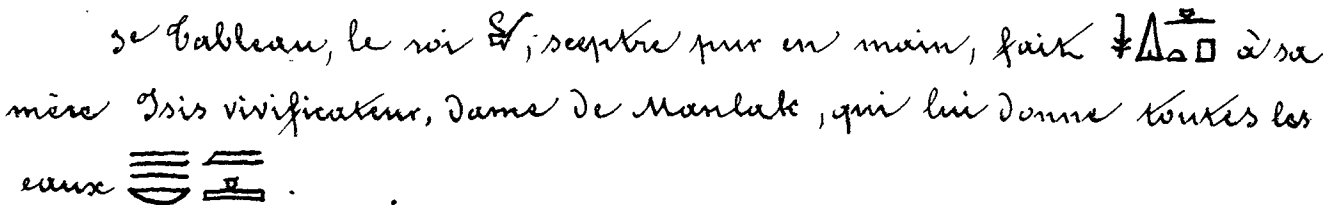 3e Tableau, le roi 𓋔, sceptre pur en main, fait 𓇓𓏙𓊵 à sa
mère Isis vivificateur, Dame de Manlak, qui lui donne toutes les
eaux .